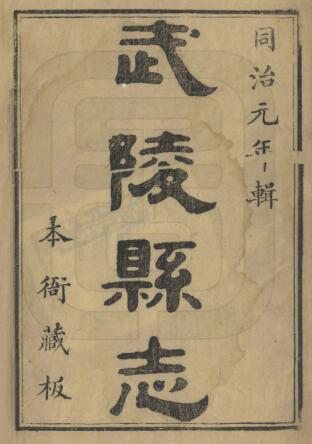 同治元年輯
武陵縣志
本衙藏板